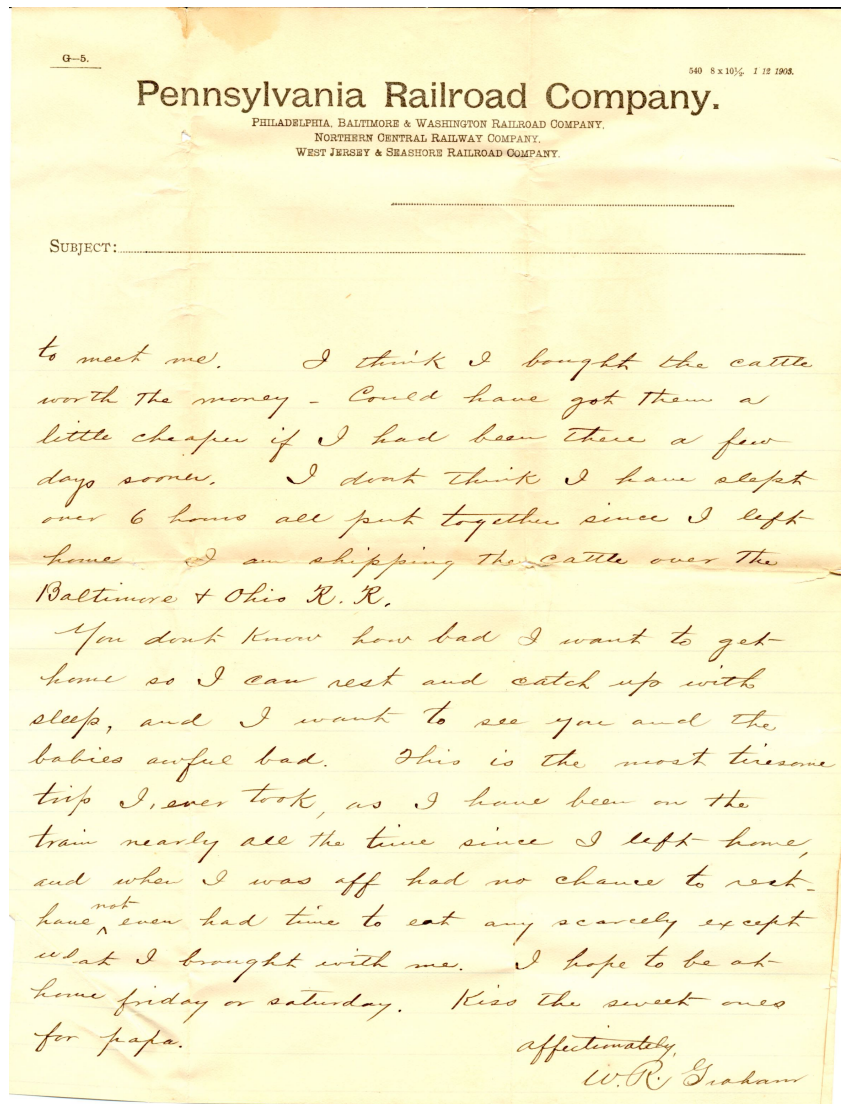 G—5.
540 8 x 10½. 1 12 1903.
Pennsylvania Railroad Company.
PHILADELPHIA, BALTIMORE & WASHINGTON RAILROAD COMPANY.
NORTHERN CENTRAL RAILWAY COMPANY.
WEST JERSEY & SEASHORE RAILROAD COMPANY.
SUBJECT:
to meet me. I think I bought the cattle
worth the money – Could have got them a
little cheaper if I had been there a few
days sooner. I dont think I have slept
over 6 hours all put together since I left
home I am shipping the cattle over the
Baltimore & Ohio R. R.
You dont know how bad I want to get
home so I can rest and catch up with
sleep, and I want to see you and the
babies awful bad. This is the most tiresome
trip I, ever took, as I have been on the
train nearly all the time since I left home,
and when I was off had no chance to rest–
have not even had time to eat any scarcely except
what I brought with me. I hope to be at
home friday or saturday. Kiss the sweet ones
for papa.
affectionately,
W. R. Graham